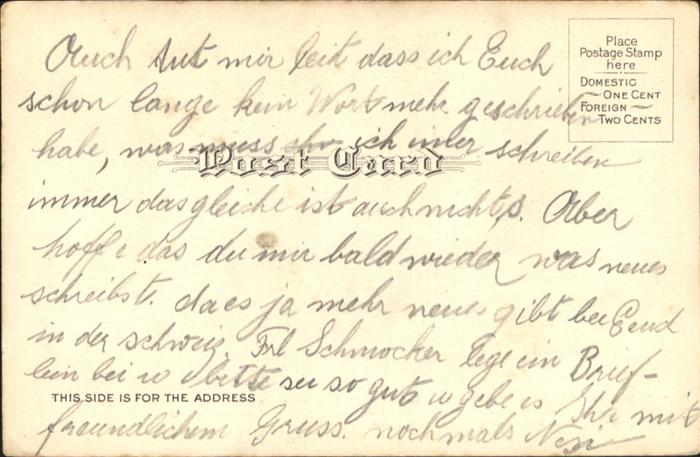 Place
Postage Stamp
here
DOMESTIC
ONE CENT
FOREIGN
TWO CENTS
Post Card
THIS SIDE IS FOR THE ADDRESS
Auch tut mir leit dass ich Euch
schon lange kein Wort mehr geschrieben
habe, was muss ich imer schreiben
immer das gleiche ist auch nichts. Aber
hoffe das du mir bald wieder was neues
schreibst. da es ja mehr neues gibt bei Eud
in der schweiz. Frl Schmocker lege ein Brief-
lein bei u bitte sei so gut u gebe es Ihr mit
freundlichem Gruss. nochmals